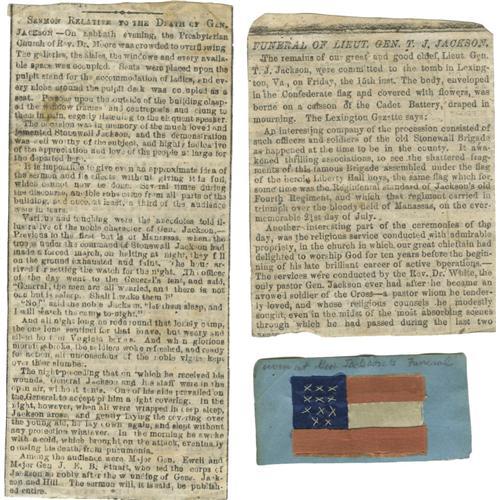 SERMON RELATIVE TO THE DEATH OF GEN.
JACKSON—On sabbath evening, the Presbyterian
Church of Rev. Dr. Moore was crowded to overflowing
The galleries, the aisles, the windows and every avail-
able space was occupied. Seats were placed upon the
pulpit stand for the accommodation of ladies, and ev-
ery niche around the pulpit desk was occupied as a
seat. Persons upon the outside of the building clasp-
ed the window frames and and clung to
them in eagerly listening to the eloquent speaker
The occasion was in memory of the much loved and
lamented Stonewall Jackson, and the demonstration
was well worthy of the subject, and highly indicative
of the appreciation and love of the people at large for
the departed hero.
It is impossible to give even an approximate idea of
the sermon and its effects without giving it in full,
which cannot now be done. Several times during
the discourse, audible sobs came from all parts of the
building, and once, at least, a third of the audience
were in tears.
Various and touching were the anecdotes told il-
lustrative of the noble character of Gen. Jackson.—
Previous to the first battle of Manassas, when the
troops under the command of Stonewall Jackson had
made a forced march, on halting at night, they fell
on the ground exhausted and faint. The hour ar-
rived for setting the watch for the night. The officer
of the day went to the General's tent, and said,
"General, the men are all wearied, and there is not
one but is asleep. Shall I wake them?"
"No," said the noble Jackson, "let them sleep, and
I will watch the camp to-night."
And all night long he rode round that lonely camp,
the one lone sentinel for that brave, but weary and
silent body of Virginia heroes. And when glorious
morning broke, the soldiers awoke fresh and ready
for action, all unconscious of the noble vigils kept
over their slumber.
The night preceding that on which he received his
wounds, General Jackson and his staff were in the
open air, without tents. One of his side prevailed on
the General to accept of him a light covering. In the
night, however, when all were wrapped in deep sleep,
Jackson arose, and gently laying the covering over
the young aid, he lay down again, and slept without
any protection whatever. In the morning he awoke
with a cold, which brought on the attack, eventually
causing his death, from pneumonia.
Among the audience were Major Gen. Ewell and
Major Gen J. E. B. Stuart, who led the corps of
Jackson so nobly after the wounding of Gens. Jack-
son and Hill. The sermon will, it is said, be publish-
ed entire.
FUNERAL OF LIEUT. GEN. T. J. JACKSON.
The remains of our great and good chief, Lieut. Gen.
T. J. Jackson, were committed to the tomb in Lexing-
ton, Va., on Friday, the 15th inst. The body, enveloped
in the Confederate flag and covered with flowers, was
borne on a caisson of the Cadet Battery, draped in
mourning. The Lexington Gazette says:
An interesting company of the procession consisted of
such officers and soldiers of the old Stonewall Brigade
as happened at the time to be in the county. It awa-
kened thrilling associations, to see the shattered frag-
ments of this famous Brigade assembled under the flag
of the heroic Liberty Hall boys, the same flag which for
some time was the Regimental standard of Jackson's old
Fourth Regiment, and which that regiment carried in
triumph over the bloody field of Manassas, on the ever-
memorable 21st day of July.
Another interesting part of the ceremonies of the
day, was the religious service conducted with admirable
propriety, in the church in which our great chieftain had
delighted to worship God for ten years before the begin-
ning of his late brilliant career of active operations.—
The services were conducted by the Rev. Dr. White, the
only pastor Gen. Jackson ever had after he became an
avowed soldier of the Cross—a pastor whom he tender-
ly loved, and whose religious counsels he modestly
sought, even in the midst of the most absorbing scenes
through which he had passed during the last two
worn at Gen Jackson's Funeral